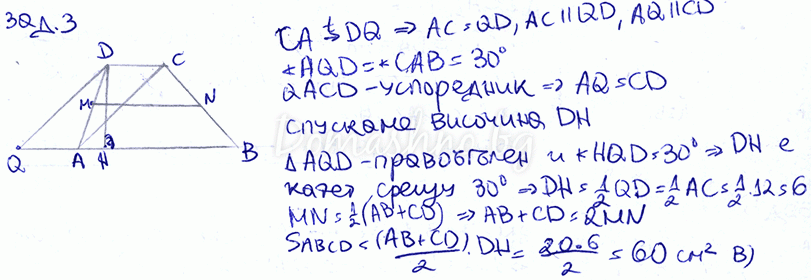 Зад.3
CA t→ DQ ⇒ AC = QD, AC || QD, AQ || CD
∢AQD = ∢CAB = 30°
QACD - успоредник ⇒ AQ = CD
Спускаме височина DH
△AQD - правоъгълен и ∢HQD = 30° ⇒ DH е
катет срещу 30° ⇒ DH = 1/2 QD = 1/2 AC = 1/2 . 12 = 6
MN = 1/2 (AB + CD) ⇒ AB + CD = 2MN
SABCD = (AB + CD)/2 . DH = 20.6/2 = 60 см² В)
D C
M N
Q A H B
Domashno.bg